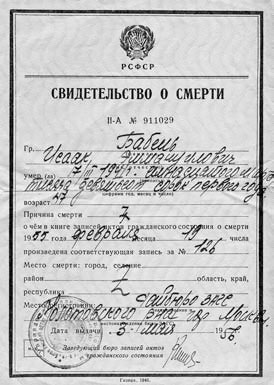 РСФСР
СВИДЕТЕЛЬСТВО О СМЕРТИ
II-А № 911029
Гр. Бабель
Исаак, Эммануилович
умер (ла) 17/III 1941 г.
тысяча девятьсот сорок первого года
возраст 47
Причина смерти Z
о чем в книге записей актов гражданского состояния о смерти
1955 года февраля месяца 19 числа
произведена соответствующая запись за № 126
Место смерти: город, селение
район Z область, край,
республика
Место регистрации
Дата выдачи 5 мая 1956.
Заведующий бюро записей актов
гражданского состояния